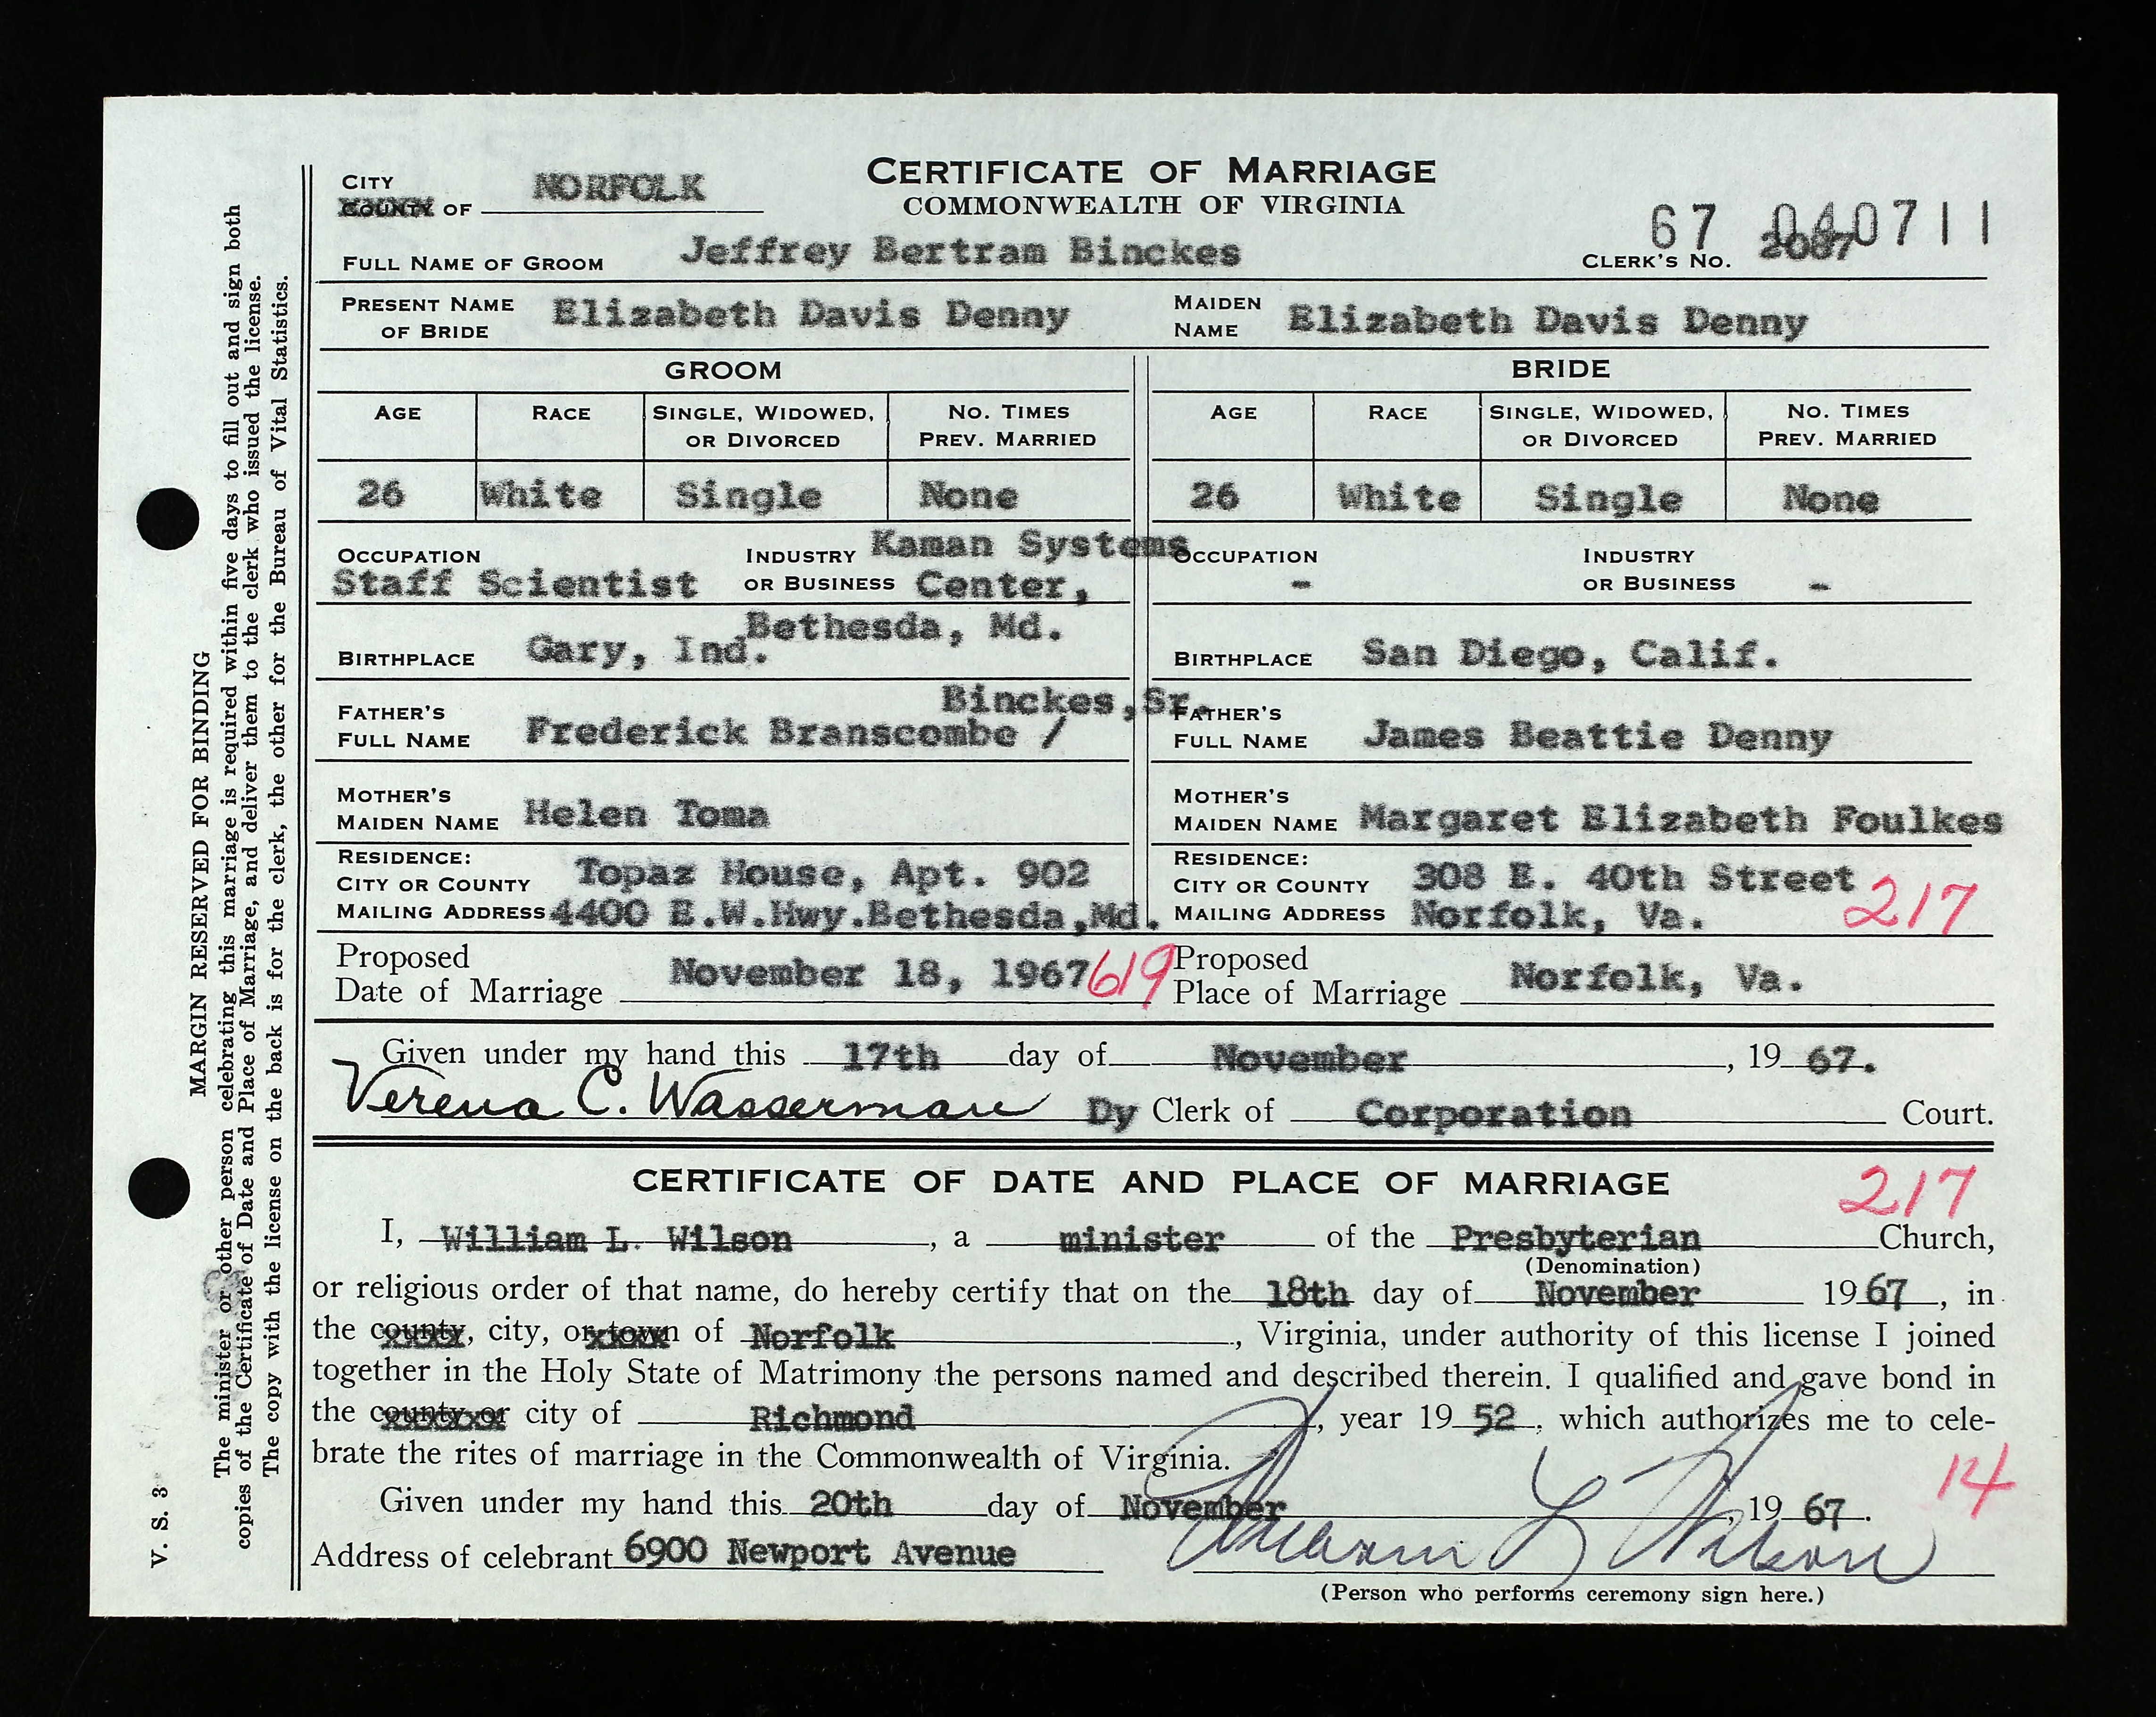 CERTIFICATE OF MARRIAGE
COMMONWEALTH OF VIRGINIA
CITY
COUNTY OF NORFOLK
67 040711
CLERK'S NO. 2087
FULL NAME OF GROOM Jeffrey Bertram Binckes
PRESENT NAME OF BRIDE Elizabeth Davis Denny MAIDEN NAME Elizabeth Davis Denny
GROOM BRIDE
AGE RACE SINGLE, WIDOWED, OR DIVORCED NO. TIMES PREV. MARRIED AGE RACE SINGLE, WIDOWED, OR DIVORCED NO. TIMES PREV. MARRIED
26 White Single None 26 White Single None
OCCUPATION Staff Scientist INDUSTRY OR BUSINESS Kaman Systems Center, Bethesda, Md. OCCUPATION - INDUSTRY OR BUSINESS -
BIRTHPLACE Gary, Ind. BIRTHPLACE San Diego, Calif.
FATHER'S FULL NAME Frederick Branscombe / Binckes, Sr. FATHER'S FULL NAME James Beattie Denny
MOTHER'S MAIDEN NAME Helen Toma MOTHER'S MAIDEN NAME Margaret Elizabeth Foulkes
RESIDENCE: RESIDENCE:
CITY OR COUNTY Topaz House, Apt. 902 CITY OR COUNTY 308 E. 40th Street
MAILING ADDRESS 4400 E.W.Hwy.Bethesda,Md. MAILING ADDRESS Norfolk, Va. 217
Proposed Date of Marriage November 18, 1967 619 Proposed Place of Marriage Norfolk, Va.
Given under my hand this 17th day of November, 19 67.
Verena C. Wasserman Dy Clerk of Corporation Court.
CERTIFICATE OF DATE AND PLACE OF MARRIAGE 217
I, William L. Wilson, a minister of the Presbyterian Church,
(Denomination)
or religious order of that name, do hereby certify that on the 18th day of November 1967, in
the county, city, or town of Norfolk, Virginia, under authority of this license I joined
together in the Holy State of Matrimony the persons named and described therein. I qualified and gave bond in
the county or city of Richmond, year 19 52, which authorizes me to cele-
brate the rites of marriage in the Commonwealth of Virginia.
14
Given under my hand this 20th day of November, 19 67.
Address of celebrant 6900 Newport Avenue William L Wilson
(Person who performs ceremony sign here.)
MARGIN RESERVED FOR BINDING
The minister or other person celebrating this marriage is required within five days to fill out and sign both
copies of the Certificate of Date and Place of Marriage, and deliver them to the clerk who issued the license.
The copy with the license on the back is for the clerk, the other for the Bureau of Vital Statistics.
V. S. 3